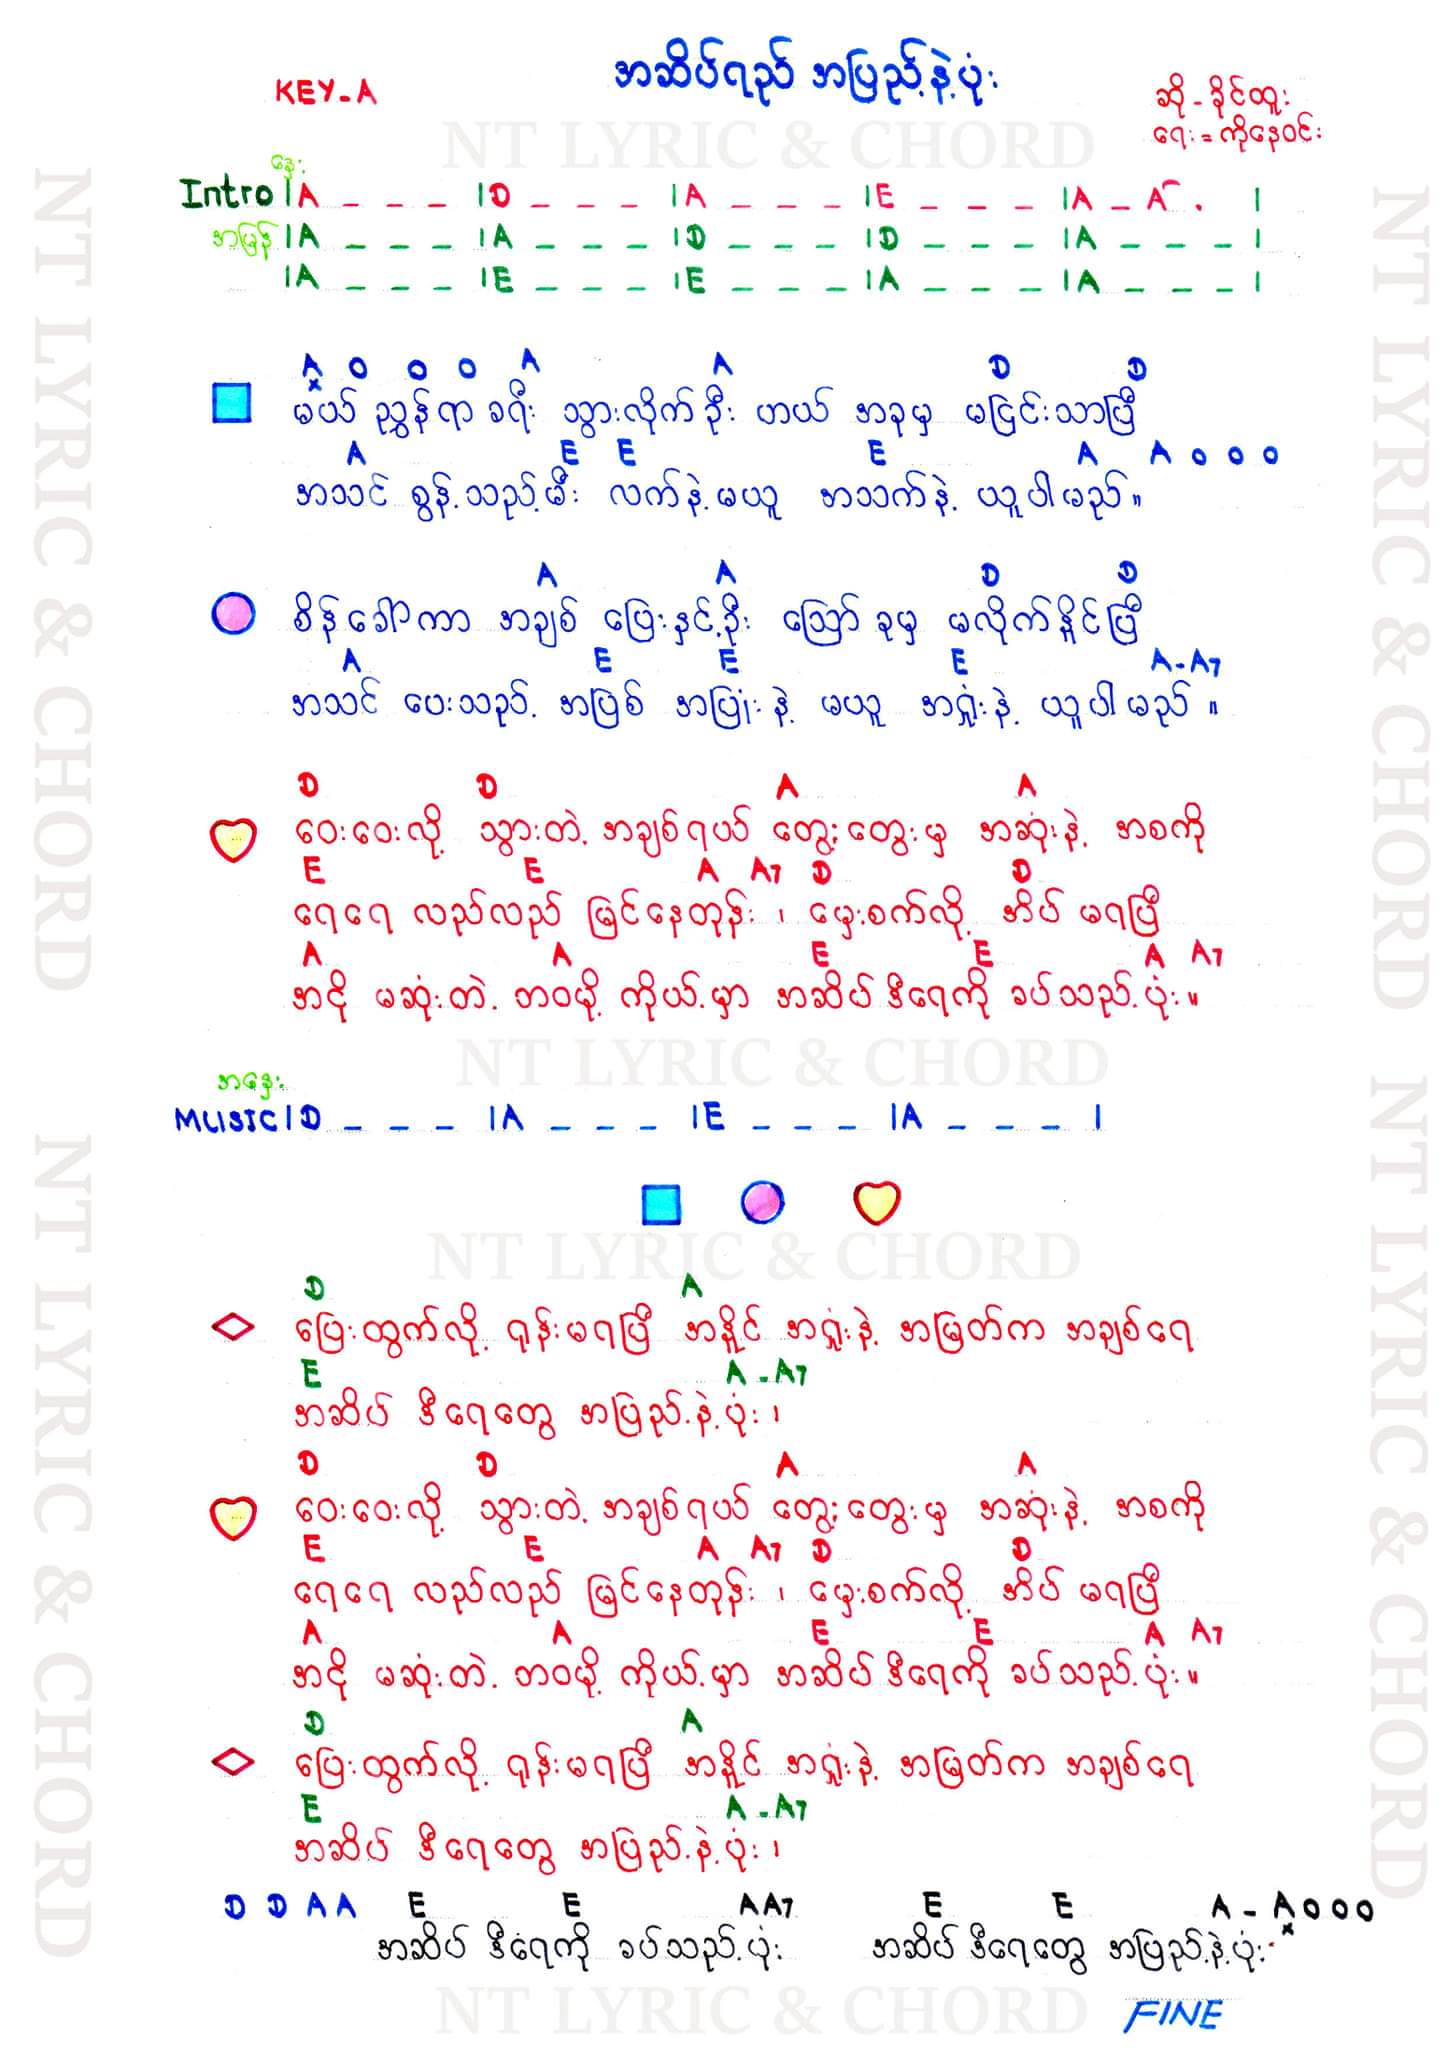 အဆိပ်ရည် အပြည့်နဲ့ပုံး
KEY-A
ဆို - ခိုင်ထူး
ရေး = ကိုနေဝင်း
NT LYRIC & CHORD
နှေး
Intro |A _ _ _ |D _ _ _ |A _ _ _ |E _ _ _ |A _ A . |
အမြန် |A _ _ _ |A _ _ _ |D _ _ _ |D _ _ _ |A _ _ _ |
|A _ _ _ |E _ _ _ |E _ _ _ |A _ _ _ |A _ _ _ |
A O O O A A D D
မယ် ညွှန်ရာ ခရီး သွားလိုက်ဦး ဟယ် အခုမှ မငြင်းသာပြီ
A E E E A A O O O
အသင် စွန့်သည့်မီး လက်နဲ့မယူ အသက်နဲ့ ယူပါမည်။
A A D D
စိန်ခေါ်ကာ အချစ် ပြေးနှင့်ဦး ဪ ခုမှ မလိုက်နိုင်ပြီ
A E E E A-A7
အသင် ပေးသည့် အပြစ် အပြုံးနဲ့ မယူ အရှုံးနဲ့ ယူပါမည်။
D D A A
ဝေးဝေးလို့ သွားတဲ့ အချစ်ရယ် တွေ့တွေးမှ အဆုံးနဲ့ အစကို
E E A A7 D D
ရေရေ လည်လည် မြင်နေတုန်း ၊ မှေးစက်လို့ အိပ် မရပြီ
A A E E A A7
အငို မဆုံးတဲ့ ဘဝမို့ ကိုယ့်မှာ အဆိပ်ဒီရေကို ခပ်သည့်ပုံး။
NT LYRIC & CHORD
အနှေး
MUSIC |D _ _ _ |A _ _ _ |E _ _ _ |A _ _ _ |
NT LYRIC & CHORD
D A
ပြေးထွက်လို့ ရုန်းမရပြီ အနိုင် အရှုံးနဲ့ အမြတ်က အချစ်ရေ
E A-A7
အဆိပ် ဒီရေတွေ အပြည့်နဲ့ပုံး ၊
D D A A
ဝေးဝေးလို့ သွားတဲ့ အချစ်ရယ် တွေ့တွေးမှ အဆုံးနဲ့ အစကို
E E A A7 D D
ရေရေ လည်လည် မြင်နေတုန်း ၊ မှေးစက်လို့ အိပ် မရပြီ
A A E E A A7
အငို မဆုံးတဲ့ ဘဝမို့ ကိုယ့်မှာ အဆိပ်ဒီရေကို ခပ်သည့်ပုံး။
D A
ပြေးထွက်လို့ ရုန်းမရပြီ အနိုင် အရှုံးနဲ့ အမြတ်က အချစ်ရေ
E A-A7
အဆိပ် ဒီရေတွေ အပြည့်နဲ့ပုံး ၊
D D A A E E AA7 E E A - A O O O
အဆိပ် ဒီရေကို ခပ်သည့်ပုံး အဆိပ် ဒီရေတွေ အပြည့်နဲ့ပုံး
NT LYRIC & CHORD
FINE
NT LYRIC & CHORD
NT LYRIC & CHORD
NT LYRIC & CHORD
NT LYRIC & CHORD